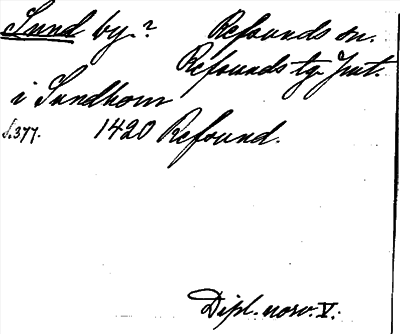 Sund by.? Refsunds sn.
Refsunds tg. Jmt.
i Sundhom
s.377. 1420 Refsund.
Dipl. norv. V.